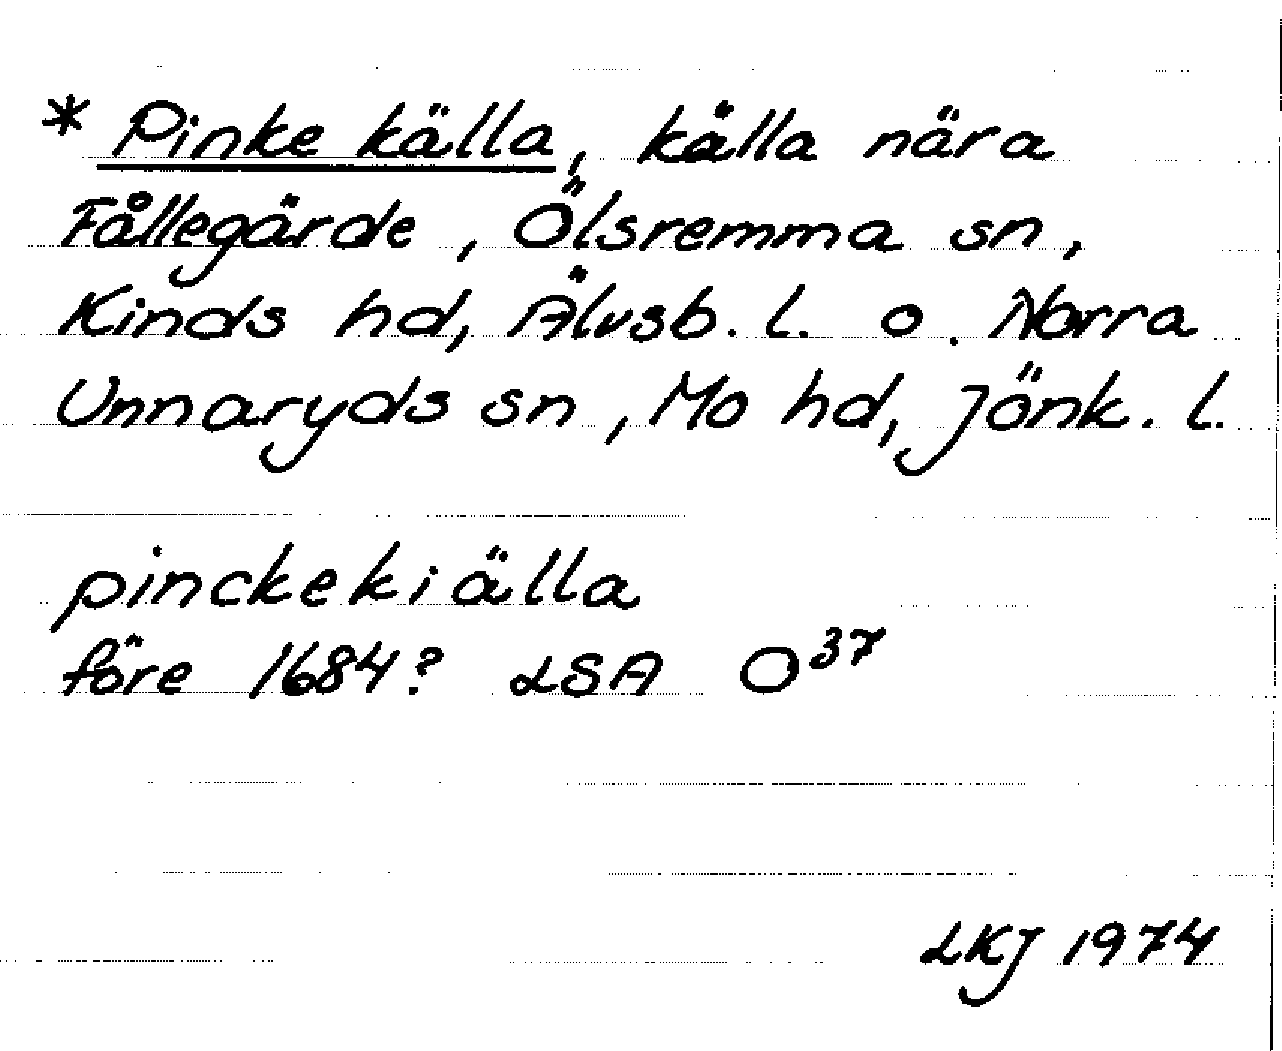 * Pinke källa, källa nära
Fållegärde, Ölsremma sn,
Kinds hd, Älvsb. l. o. Norra
Unnaryds sn, Mo hd, Jönk. l.
pinckekiälla
före 1684? LSA O37
LKJ 1974